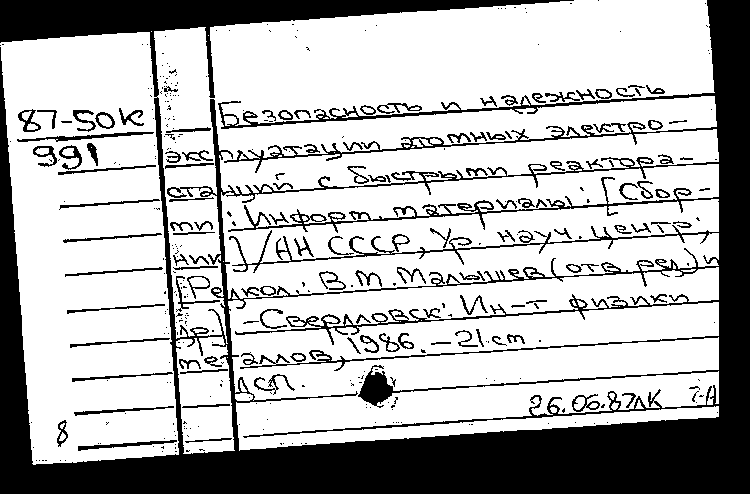 87-50к
991
Безопасность и надежность
эксплуатации атомных электро-
станций с быстрыми реактора-
ми : Информ. материалы : [Сбор-
ник] / АН СССР, Ур. науч. центр;
[Редкол.: В.М. Малышев (отв. ред.) и
др.] - Свердловск: Ин-т физики
металлов, 1986. - 21 см.
ДСП.
26.06.87 ЛК
8